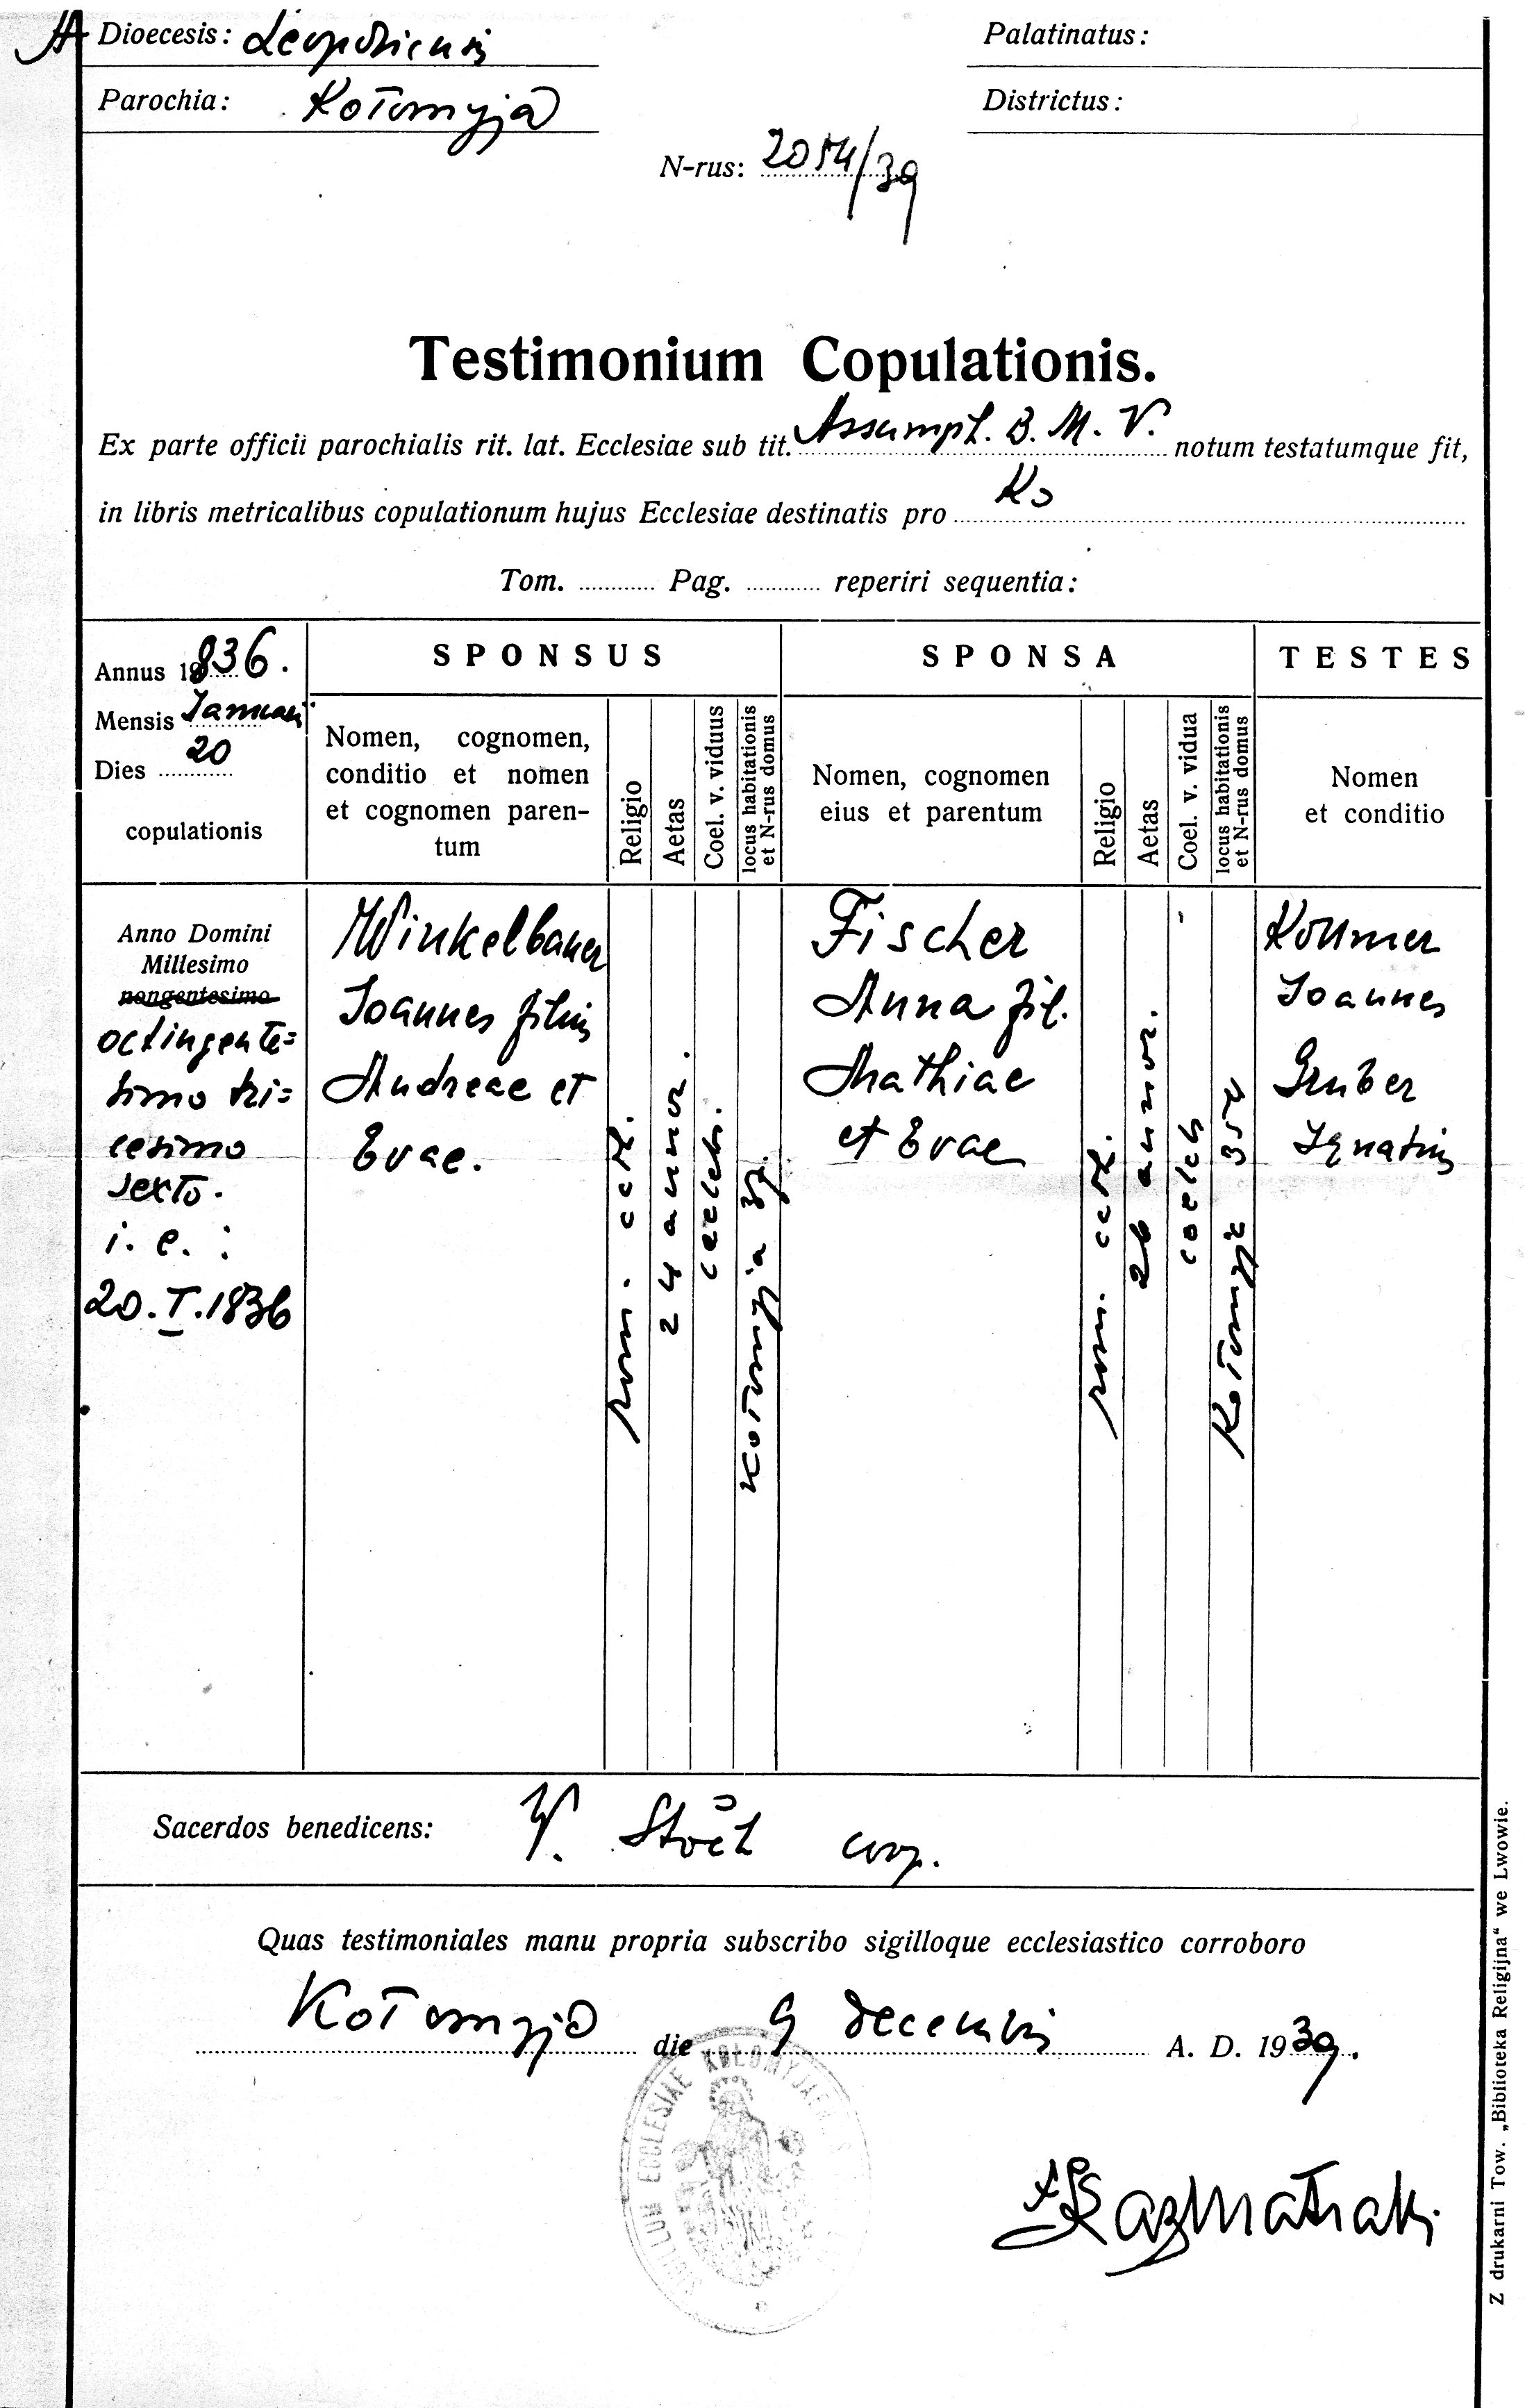 Dioecesis: Leopoliensis
Parochia: Kołomyja
Palatinatus:
Districtus:
N-rus: 2054/39
Testimonium Copulationis.
Ex parte officii parochialis rit. lat. Ecclesiae sub tit. Assumpt. B. M. V. notum testatumque fit,
in libris metricalibus copulationum hujus Ecclesiae destinatis pro Ko
Tom. Pag. reperiri sequentia:
Annus 1836.
Mensis Januari
Dies 20
copulationis
SPONSUS
Nomen, cognomen,
conditio et nomen
et cognomen paren-
tum
Religio
Aetas
Coel. v. viduus
locus habitationis
et N-rus domus
SPONSA
Nomen, cognomen
eius et parentum
Religio
Aetas
Coel. v. vidua
locus habitationis
et N-rus domus
TESTES
Nomen
et conditio
Anno Domini
Millesimo
nongentesimo
octingente=
simo tri=
cesimo
sexto.
i. e. :
20. I. 1836
Winkelbauer
Joannes filius
Andreae et
Evae.
rom. cath.
24 annor.
coeleb.
Kołomyja
Fischer
Anna fil.
Mathiae
et Evae
rom. cath.
26 annor.
coeleb
Kołomyja
Kollmer
Joannes
Gruber
Ignatius
Sacerdos benedicens:
coop.
Quas testimoniales manu propria subscribo sigilloque ecclesiastico corroboro
Kołomyja die 9 decembris A. D. 1939.
SIGILLUM ECCLESIAE
Z drukarni Tow. „Biblioteka Religijna" we Lwowie.